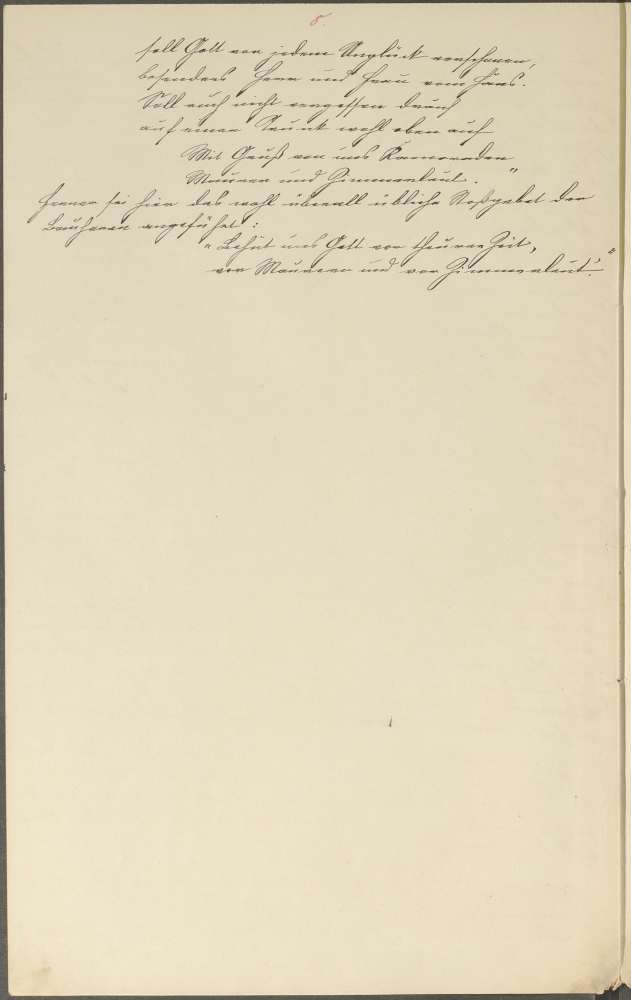 8.
soll Gott von jedem Unglück verschonen,
besonders Herr und Frau vom Haus.
Soll auch nicht vergessen drauf
auf einen Trunk wohl oben auf
Mit Gruß von uns Kameraden
Maurer und Zimmerleut."
Ferner sei hier das wohl überall übliche Stoßgebet der
Bauherren angeführt:
"Behüt uns Gott vor theurer Zeit,
vor Maurer und vor Zimmerleut!"